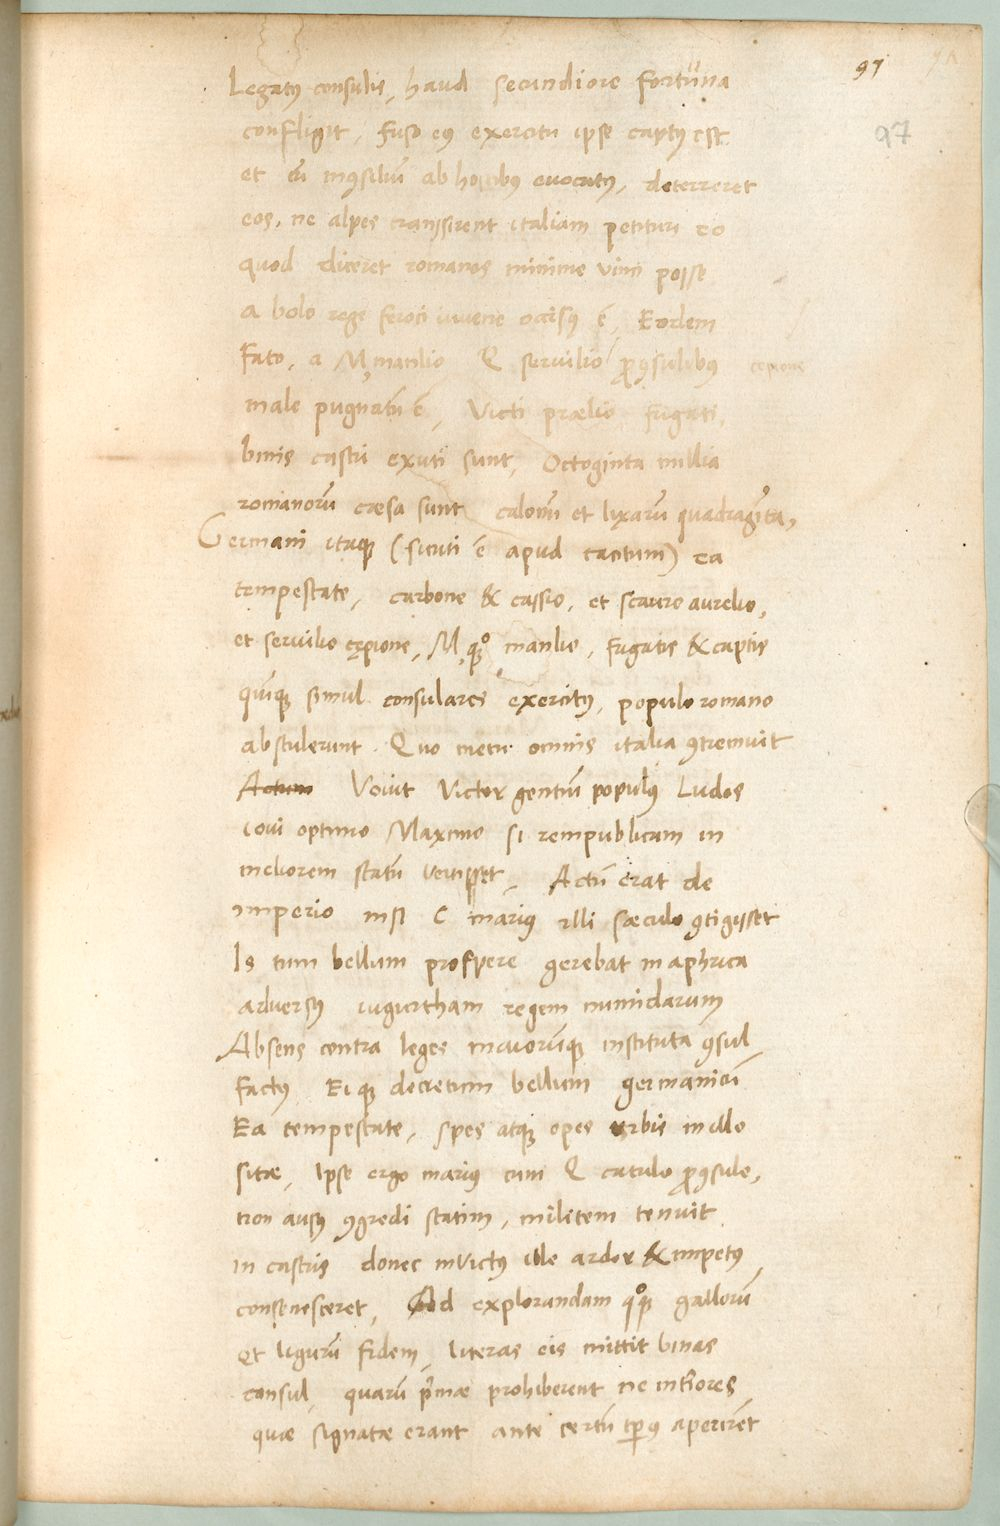 97
97
Legatꝰ consulis, haud secundiore fortuna
confligit, fuso eiꝰ exercitu ipse captꝰ est
et cū in ꝯsiliū ab hostibꝰ evocatꝰ, deterreret
eos, ne alpes transsirent italiam petituri eo
quod diceret romanos minime vinci posse
a bolo rege feroci iuvene occisꝰ ē, Eodem
fato, a M, manlio Q servilio ꝓꝯsulibꝰ cepione
male pugnatū ē, Victi prælio fugati,
binis castri exuti sunt, Octoginta millia
romanorū cæsa sunt calonū et lixarū quadraginta,
Germani itaqꝫ (sicuti ē apud tacitum) ea
tempestate, carbone & cassio, et scauro aurelio,
et servilio cępione, M, qꝫº manlio, fugatis & captis
quīqꝫ simul consulares exercitꝰ, populo romano
abstulerunt. Quo metu omnis italia ꝯtremuit
Actum Vovit Victor gentiū populꝰ Ludos
iovi optimo Maximo si rempublicam in
meliorem statū vertisset, Actū erat de
imperio nisi C mariꝰ illi sæculo ꝯtigisset
Is tum bellum prospere gerebat in aphrica
adversꝰ iugurtham regem numidarum
Absens contra leges maiorūqꝫ instituta ꝯsul
factꝰ Eiqꝫ decretum bellum germanicū
Ea tempestate, spes atqꝫ opes urbis in illo
sitæ, Ipse ergo mariꝰ cum Q catulo ꝓꝯsule,
non ausꝰ ꝯgredi statim, militem tenuit
in castris donec invictꝰ ille ardor & impetꝰ
consenesceret, Ad explorandam qºqꝫ gallorū
et ligurū fidem, literas eis mittit binas
consul, quarū p̄mæ prohiberent ne int̄iores
quæ signatæ erant ante certū tp̄ꝰ aperirēt